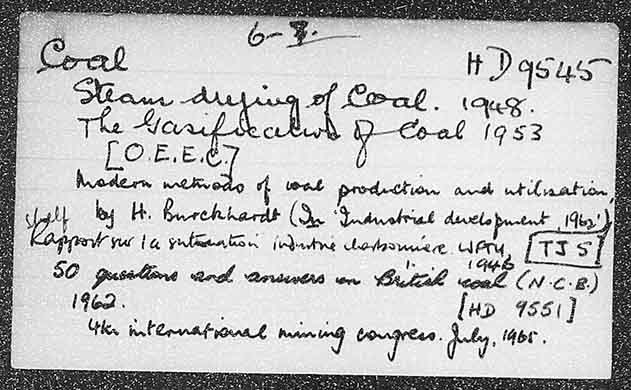 6-3.
Coal HD9545
Steam drying of Coal. 1948.
The Gasification of Coal 1953
[O.E.E.C.]
Modern methods of coal production and utilisation,
by H. Burckhardt (In 'Industrial development 1962')
shelf
Rapport sur la situation industrie charbonnière. 1946 TJ5
50 questions and answers on British coal (N.C.B.)
1962. [HD 9551]
4th international mining congress. July, 1965.